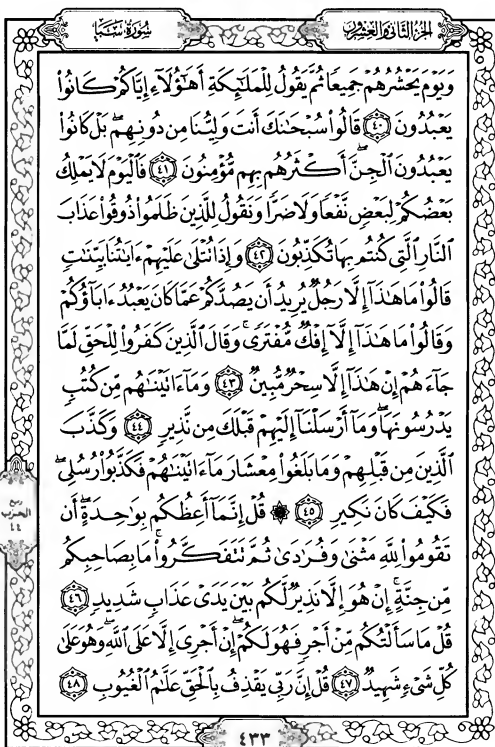 الجزء الثاني والعشرون
سورة سبإ
وَيَوْمَ يَحْشُرُهُمْ جَمِيعًا ثُمَّ يَقُولُ لِلْمَلَٰٓئِكَةِ أَهَٰٓؤُلَآءِ إِيَّاكُمْ كَانُوا۟
يَعْبُدُونَ ٤٠ قَالُوا۟ سُبْحَٰنَكَ أَنتَ وَلِيُّنَا مِن دُونِهِم بَلْ كَانُوا۟
يَعْبُدُونَ ٱلْجِنَّ أَكْثَرُهُم بِهِم مُّؤْمِنُونَ ٤١ فَٱلْيَوْمَ لَا يَمْلِكُ
بَعْضُكُمْ لِبَعْضٍ نَّفْعًا وَلَا ضَرًّا وَنَقُولُ لِلَّذِينَ ظَلَمُوا۟ ذُوقُوا۟ عَذَابَ
ٱلنَّارِ ٱلَّتِى كُنتُم بِهَا تُكَذِّبُونَ ٤٢ وَإِذَا تُتْلَىٰ عَلَيْهِمْ ءَايَٰتُنَا بَيِّنَٰتٍ
قَالُوا۟ مَا هَٰذَآ إِلَّا رَجُلٌ يُرِيدُ أَن يَصُدَّكُمْ عَمَّا كَانَ يَعْبُدُ ءَابَآؤُكُمْ
وَقَالُوا۟ مَا هَٰذَآ إِلَّآ إِفْكٌ مُّفْتَرًى ۚ وَقَالَ ٱلَّذِينَ كَفَرُوا۟ لِلْحَقِّ لَمَّا
جَآءَهُمْ إِنْ هَٰذَآ إِلَّا سِحْرٌ مُّبِينٌ ٤٣ وَمَآ ءَاتَيْنَٰهُم مِّن كُتُبٍ
يَدْرُسُونَهَا ۖ وَمَآ أَرْسَلْنَآ إِلَيْهِمْ قَبْلَكَ مِن نَّذِيرٍ ٤٤ وَكَذَّبَ
ٱلَّذِينَ مِن قَبْلِهِمْ وَمَا بَلَغُوا۟ مِعْشَارَ مَآ ءَاتَيْنَٰهُمْ فَكَذَّبُوا۟ رُسُلِى ۖ
فَكَيْفَ كَانَ نَكِيرِ ٤٥ ۞ قُلْ إِنَّمَآ أَعِظُكُم بِوَٰحِدَةٍ ۖ أَن
تَقُومُوا۟ لِلَّهِ مَثْنَىٰ وَفُرَٰدَىٰ ثُمَّ تَتَفَكَّرُوا۟ ۚ مَا بِصَاحِبِكُم
مِّن جِنَّةٍ ۚ إِنْ هُوَ إِلَّا نَذِيرٌ لَّكُم بَيْنَ يَدَىْ عَذَابٍ شَدِيدٍ ٤٦
قُلْ مَا سَأَلْتُكُم مِّنْ أَجْرٍ فَهُوَ لَكُمْ ۖ إِنْ أَجْرِىَ إِلَّا عَلَى ٱللَّهِ ۖ وَهُوَ عَلَىٰ
كُلِّ شَىْءٍ شَهِيدٌ ٤٧ قُلْ إِنَّ رَبِّى يَقْذِفُ بِٱلْحَقِّ عَلَّٰمُ ٱلْغُيُوبِ ٤٨
ربع
الحزب
٤٤
٤٣٣